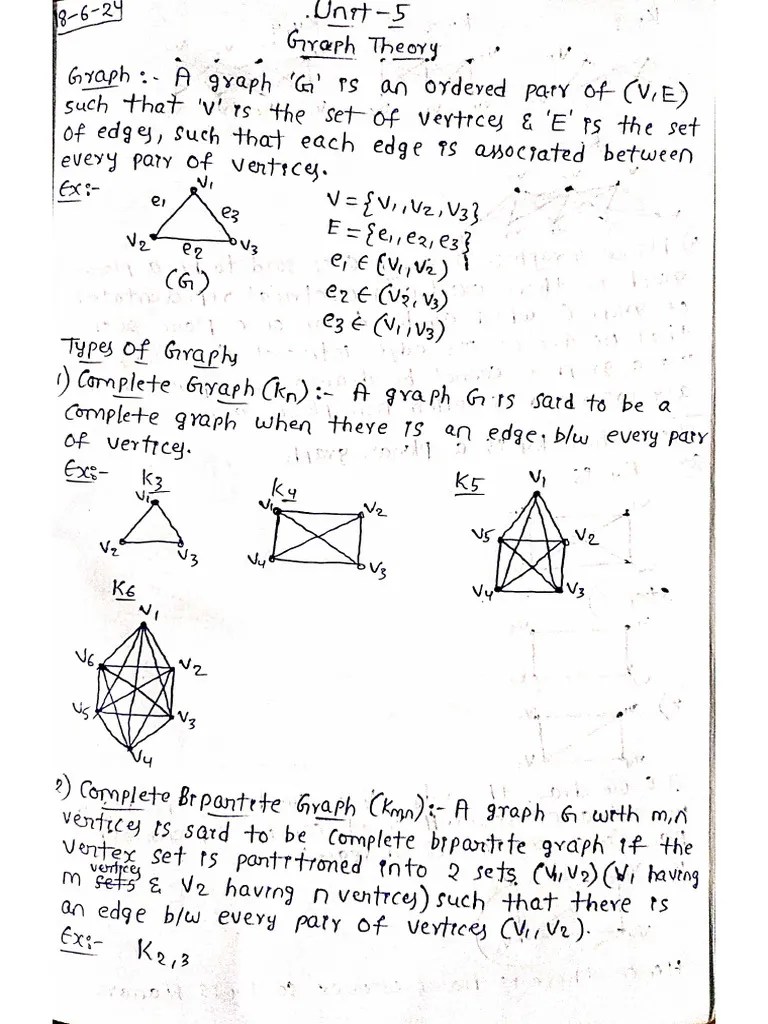 18-6-24
Unit-5
Graph Theory
Graph :- A graph 'G' is an ordered pair of (V,E)
such that 'V' is the set of vertices & 'E' is the set
of edges, such that each edge is associated between
every pair of vertices.
Ex:-
V1
e1
e3
V2
e2
V3
(G)
V = {V1, V2, V3}
E = {e1, e2, e3}
e1 ∈ (V1, V2)
e2 ∈ (V2, V3)
e3 ∈ (V1, V3)
Types of Graphs
1) Complete Graph (Kn) :- A graph G is said to be a
complete graph when there is an edge b/w every pair
of vertices.
Ex:-
K3
V1
V2
V3
K4
V1
V2
V4
V3
K5
V1
V5
V2
V4
V3
K6
V1
V6
V2
V5
V3
V4
2) Complete Bipartite Graph (Km,n) :- A graph G with m,n
vertices is said to be complete bipartite graph if the
vertex set is partitioned into 2 sets (V1,V2) (V1 having
m vertices & V2 having n vertices) such that there is
an edge b/w every pair of vertices (V1, V2).
Ex:-
K2,3